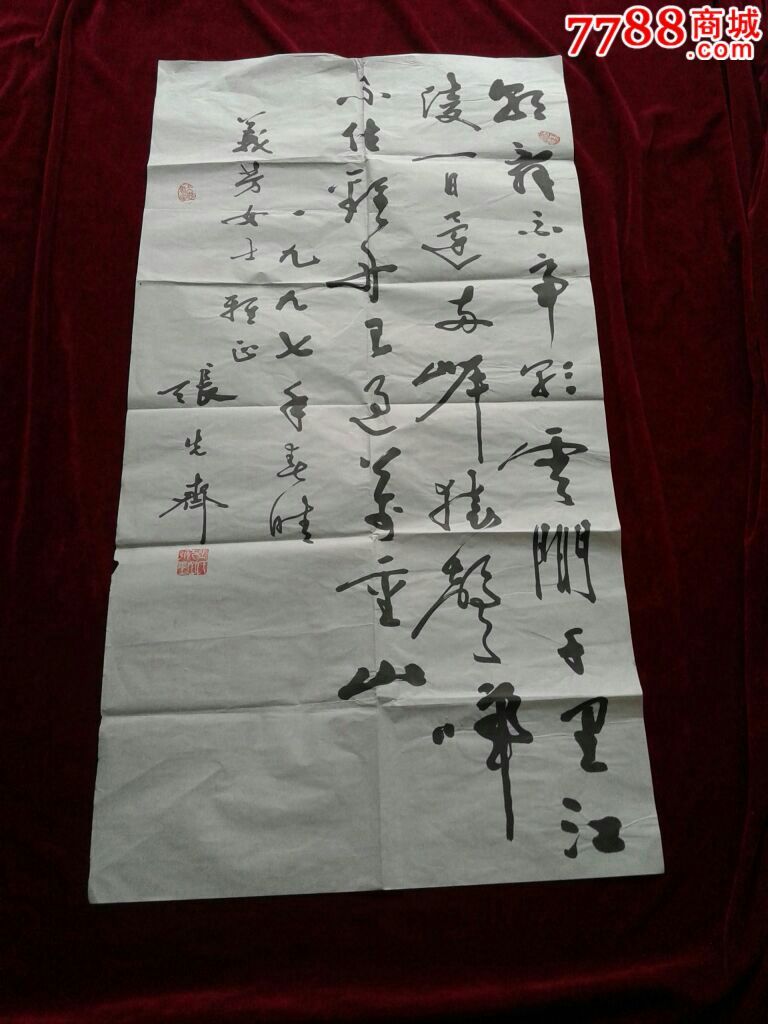 7788商城
.com
朝辞白帝彩雲間千里江
陵一日還两岸猿聲啼
不住輕舟已过萬重山
一九九七年春晴
義芳女士雅正
張先齊